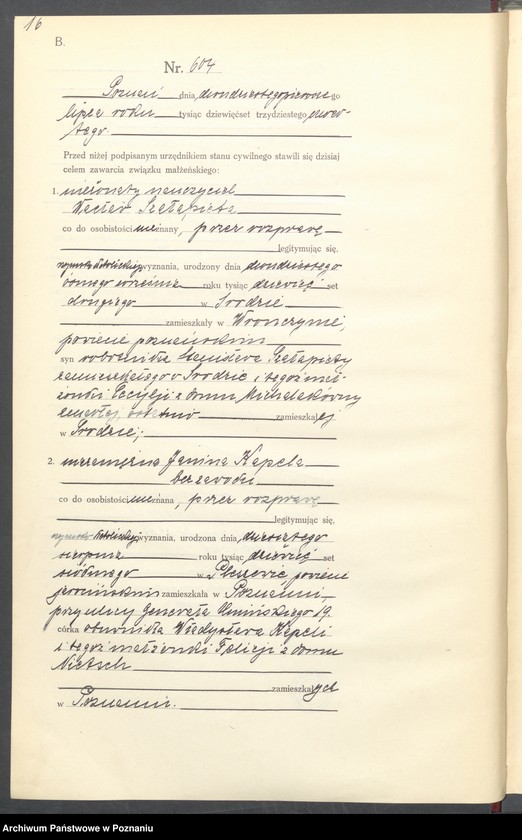 16
B.
Nr. 604
Poznań dnia dwudziestego pierwszego
lipca roku tysiąc dziewięćset trzydziestego
tego
Przed niżej podpisanym urzędnikiem stanu cywilnego stawili się dzisiaj
celem zawarcia związku małżeńskiego:
1. nieżonaty nauczyciel
Wacław Szałapieta
co do osobistości nieznany, przez rozprawę
legitymując się,
rzymsko katolickiego wyznania, urodzony dnia dwudziestego
ósmego września roku tysiąc dziewięć set
drugiego w Środzie
zamieszkały w Wronczynie,
powiecie poznańskim
syn robotnika Szałapiety
zamieszkałego w Środzie i tegoż mał-
żonki Cecylji z domu Michalakówny
zmarłej, ostatnio zamieszkałej
w Środzie;
2. niezamężna Janina Kapela
bez zawodu
co do osobistości nieznana, przez rozprawę
legitymując się,
rzymsko katolickiego wyznania, urodzona dnia
sierpnia roku tysiąc dziewięć set
siódmego w powiecie
jarocińskim zamieszkała w Poznaniu
przy ulicy Generała Umińskiego 19.
córka Władysława Kapeli
i tegoż małżonki Felicji z domu
zamieszkałych
w Poznaniu.
Archiwum Państwowe w Poznaniu